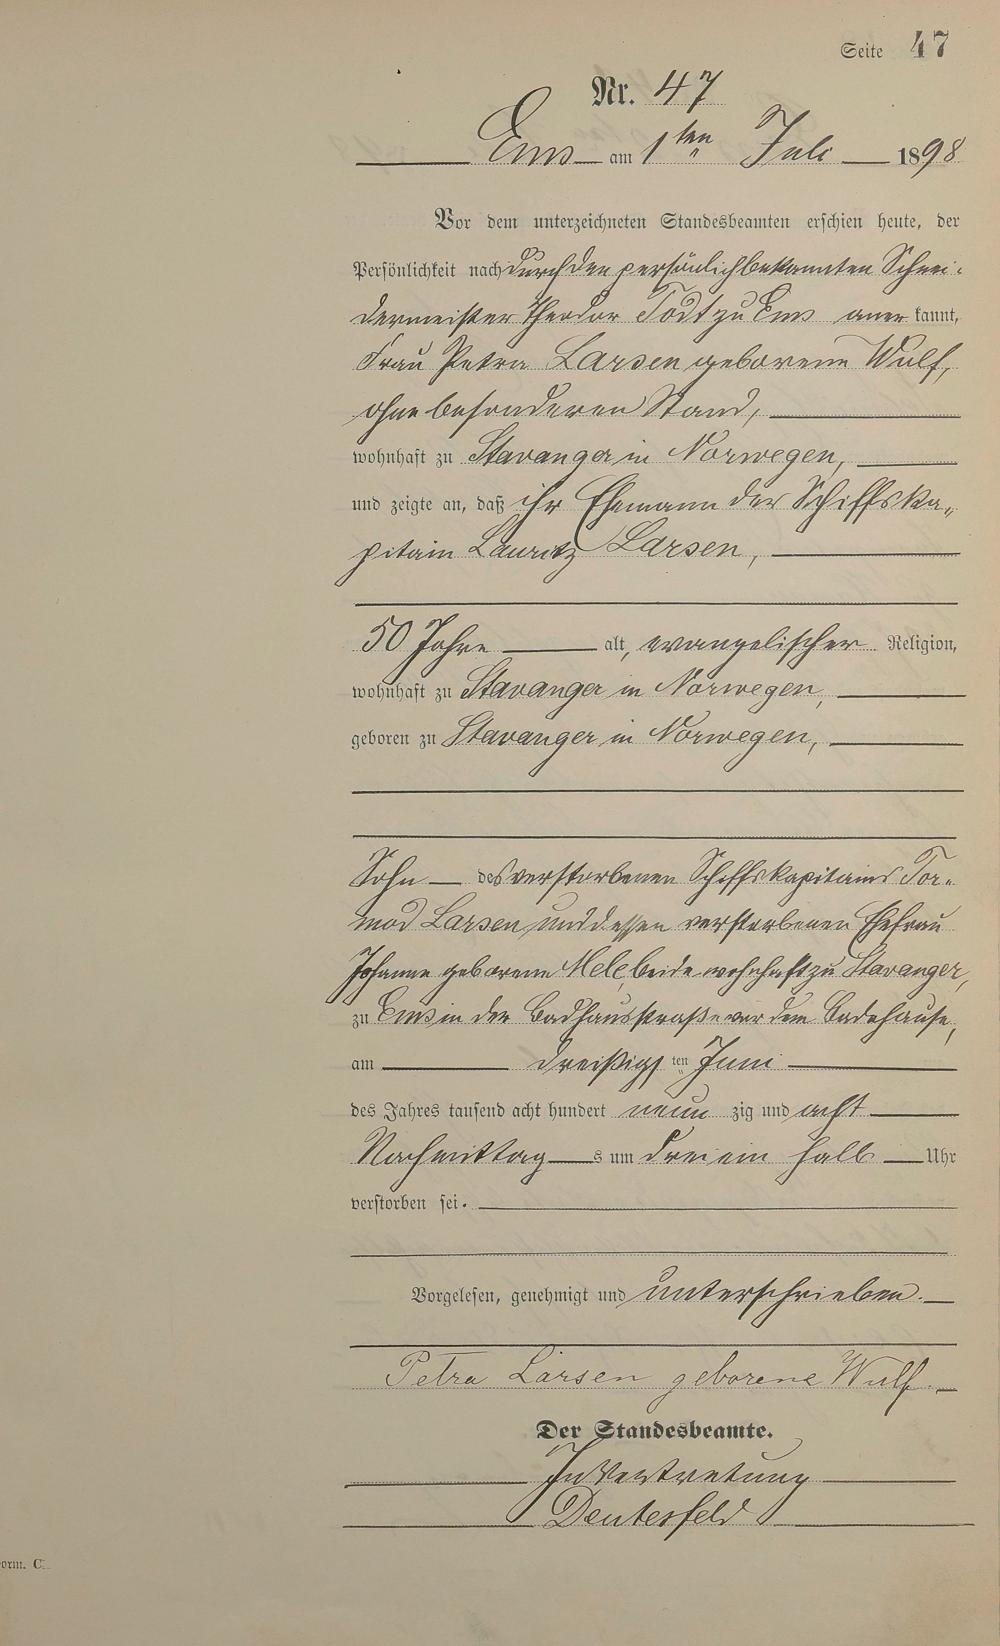 Seite 47
Nr. 47
Ems am 1ten Juli 1898
Vor dem unterzeichneten Standesbeamten erschien heute, der
Persönlichkeit nach durch den persönlich bekannten Schnei-
dermeister Theodor Todt zu Ems anerkannt,
Frau Petra Larsen geborene Wulf,
ohne besonderen Stand,
wohnhaft zu Stavanger in Norwegen,
und zeigte an, daß ihr Ehemann der Schiffska-
pitain Lauritz Larsen,
50 Jahre alt, evangelischer Religion,
wohnhaft zu Stavanger in Norwegen,
geboren zu Stavanger in Norwegen,
Sohn des verstorbenen Schiffskapitains Tor-
mod Larsen und dessen verstorbenen Ehefrau
Johanne geborene Mele, beide wohnhaft zu Stavanger,
zu Ems in der Badhausstraße vor dem Badehause,
am dreißigsten Juni
des Jahres tausend acht hundert neunzig und acht
Nachmittags um drei ein halb Uhr
verstorben sei.
Vorgelesen, genehmigt und unterschrieben.
Petra Larsen geborene Wulf
Der Standesbeamte.
In Vertretung
Deutesfeld
orm. C.